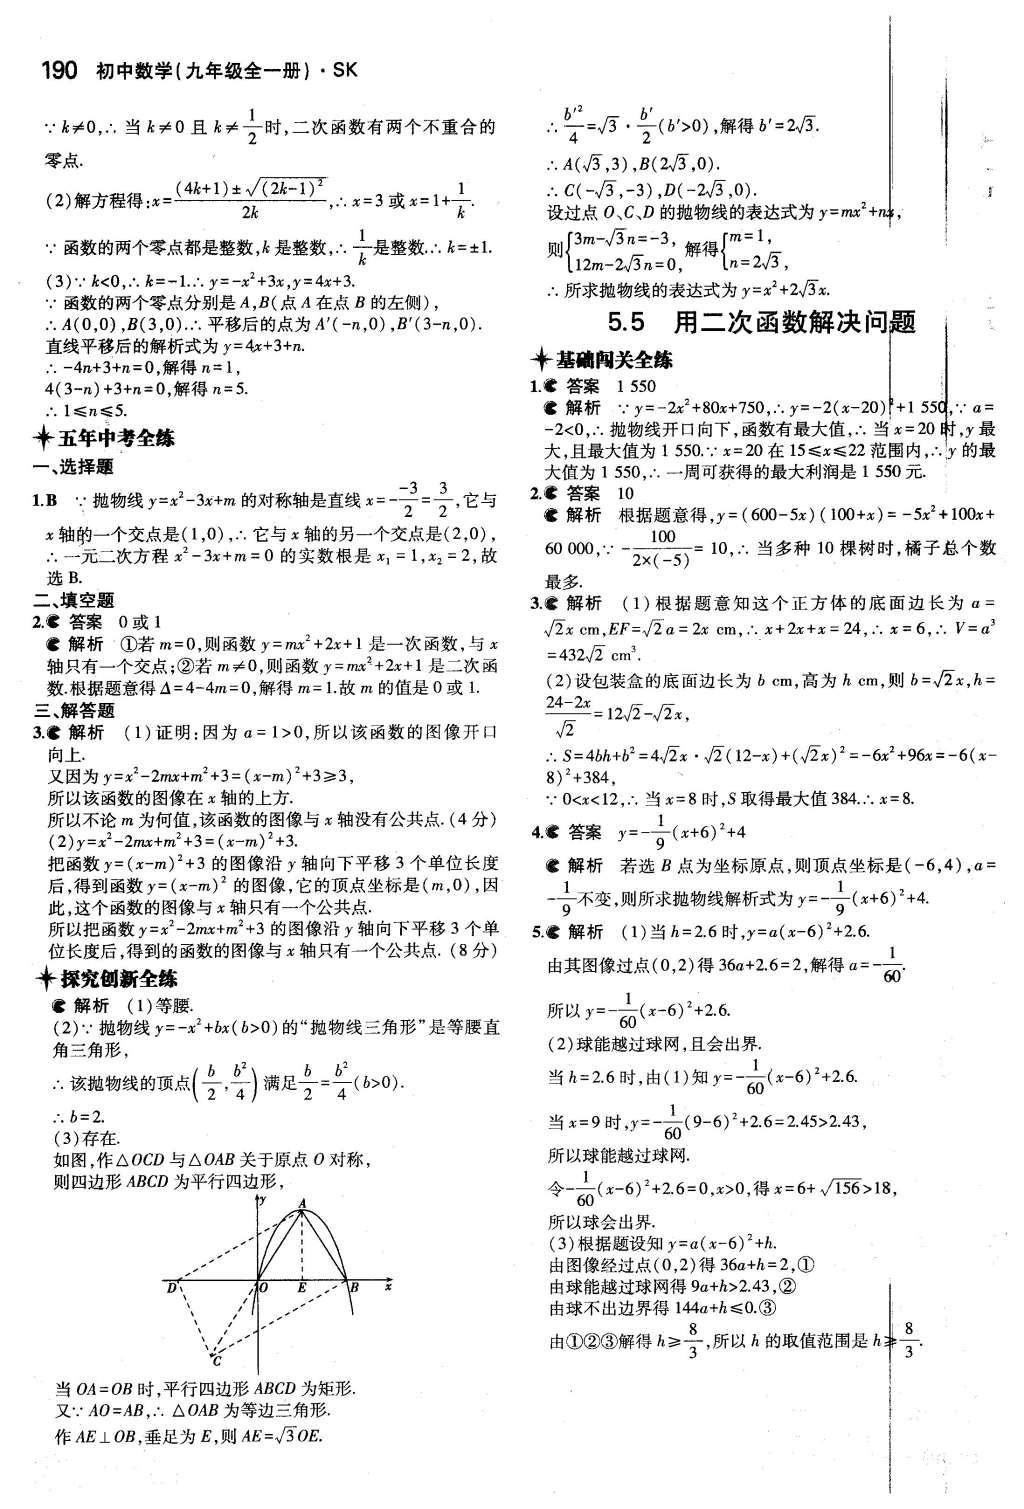 190 初中数学(九年级全一册)·SK
∵k≠0,∴当k≠0且k≠1/2时,二次函数有两个不重合的
零点.
(2)解方程得:x=((4k+1)±√((2k-1)²))/(2k),∴x=3或x=1+1/k.
∵函数的两个零点都是整数,k是整数,∴1/k是整数.∴k=±1.
(3)∵k<0,∴k=-1.∴y=-x²+3x,y=4x+3.
∵函数的两个零点分别是A,B(点A在点B的左侧),
∴A(0,0),B(3,0).∴平移后的点为A′(-n,0),B′(3-n,0).
直线平移后的解析式为y=4x+3+n.
∴-4n+3+n=0,解得n=1,
4(3-n)+3+n=0,解得n=5.
∴1≤n≤5.
五年中考全练
一、选择题
1.B ∵抛物线y=x²-3x+m的对称轴是直线x=-(-3)/2=3/2,它与
x轴的一个交点是(1,0),∴它与x轴的另一个交点是(2,0),
∴一元二次方程x²-3x+m=0的实数根是x₁=1,x₂=2,故
选B.
二、填空题
2. 答案 0或1
解析 ①若m=0,则函数y=mx²+2x+1是一次函数,与x
轴只有一个交点;②若m≠0,则函数y=mx²+2x+1是二次函
数.根据题意得Δ=4-4m=0,解得m=1.故m的值是0或1.
三、解答题
3. 解析 (1)证明:因为a=1>0,所以该函数的图像开口
向上.
又因为y=x²-2mx+m²+3=(x-m)²+3≥3,
所以该函数的图像在x轴的上方.
所以不论m为何值,该函数的图像与x轴没有公共点.(4分)
(2)y=x²-2mx+m²+3=(x-m)²+3.
把函数y=(x-m)²+3的图像沿y轴向下平移3个单位长度
后,得到函数y=(x-m)²的图像,它的顶点坐标是(m,0),因
此,这个函数的图像与x轴只有一个公共点.
所以把函数y=x²-2mx+m²+3的图像沿y轴向下平移3个单
位长度后,得到的函数的图像与x轴只有一个公共点.(8分)
探究创新全练
解析 (1)等腰.
(2)∵抛物线y=-x²+bx(b>0)的“抛物线三角形”是等腰直
角三角形,
∴该抛物线的顶点(b/2,b²/4)满足b/2=b²/4(b>0).
∴b=2.
(3)存在.
如图,作△OCD与△OAB关于原点O对称,
则四边形ABCD为平行四边形,
y
A
D O E B x
C
当OA=OB时,平行四边形ABCD为矩形.
又∵AO=AB,∴△OAB为等边三角形.
作AE⊥OB,垂足为E,则AE=√3OE.
∴b′²/4=√3·b′/2(b′>0),解得b′=2√3.
∴A(√3,3),B(2√3,0).
∴C(-√3,-3),D(-2√3,0).
设过点O、C、D的抛物线的表达式为y=mx²+nx,
则{3m-√3n=-3, 12m-2√3n=0, 解得{m=1, n=2√3,
∴所求抛物线的表达式为y=x²+2√3x.
5.5 用二次函数解决问题
基础闯关全练
1. 答案 1 550
解析 ∵y=-2x²+80x+750,∴y=-2(x-20)²+1 550,∵a=
-2<0,∴抛物线开口向下,函数有最大值,∴当x=20时,y最
大,且最大值为1 550.∵x=20在15≤x≤22范围内,∴y的最
大值为1 550,∴一周可获得的最大利润是1 550元.
2. 答案 10
解析 根据题意得,y=(600-5x)(100+x)=-5x²+100x+
60 000,∵-100/(2×(-5))=10,∴当多种10棵树时,橘子总个数
最多.
3. 解析 (1)根据题意知这个正方体的底面边长为a=
√2x cm,EF=√2a=2x cm,∴x+2x+x=24,∴x=6,∴V=a³
=432√2 cm³.
(2)设包装盒的底面边长为b cm,高为h cm,则b=√2x,h=
(24-2x)/√2=12√2-√2x,
∴S=4bh+b²=4√2x·√2(12-x)+(√2x)²=-6x²+96x=-6(x-
8)²+384,
∵0<x<12,∴当x=8时,S取得最大值384.∴x=8.
4. 答案 y=-1/9(x+6)²+4
解析 若选B点为坐标原点,则顶点坐标是(-6,4),a=
-1/9不变,则所求抛物线解析式为y=-1/9(x+6)²+4.
5. 解析 (1)当h=2.6时,y=a(x-6)²+2.6.
由其图像过点(0,2)得36a+2.6=2,解得a=-1/60.
所以y=-1/60(x-6)²+2.6.
(2)球能越过球网,且会出界.
当h=2.6时,由(1)知y=-1/60(x-6)²+2.6.
当x=9时,y=-1/60(9-6)²+2.6=2.45>2.43,
所以球能越过球网.
令-1/60(x-6)²+2.6=0,x>0,得x=6+√156>18,
所以球会出界.
(3)根据题设知y=a(x-6)²+h.
由图像经过点(0,2)得36a+h=2,①
由球能越过球网得9a+h>2.43,②
由球不出边界得144a+h≤0.③
由①②③解得h≥8/3,所以h的取值范围是h≥8/3.